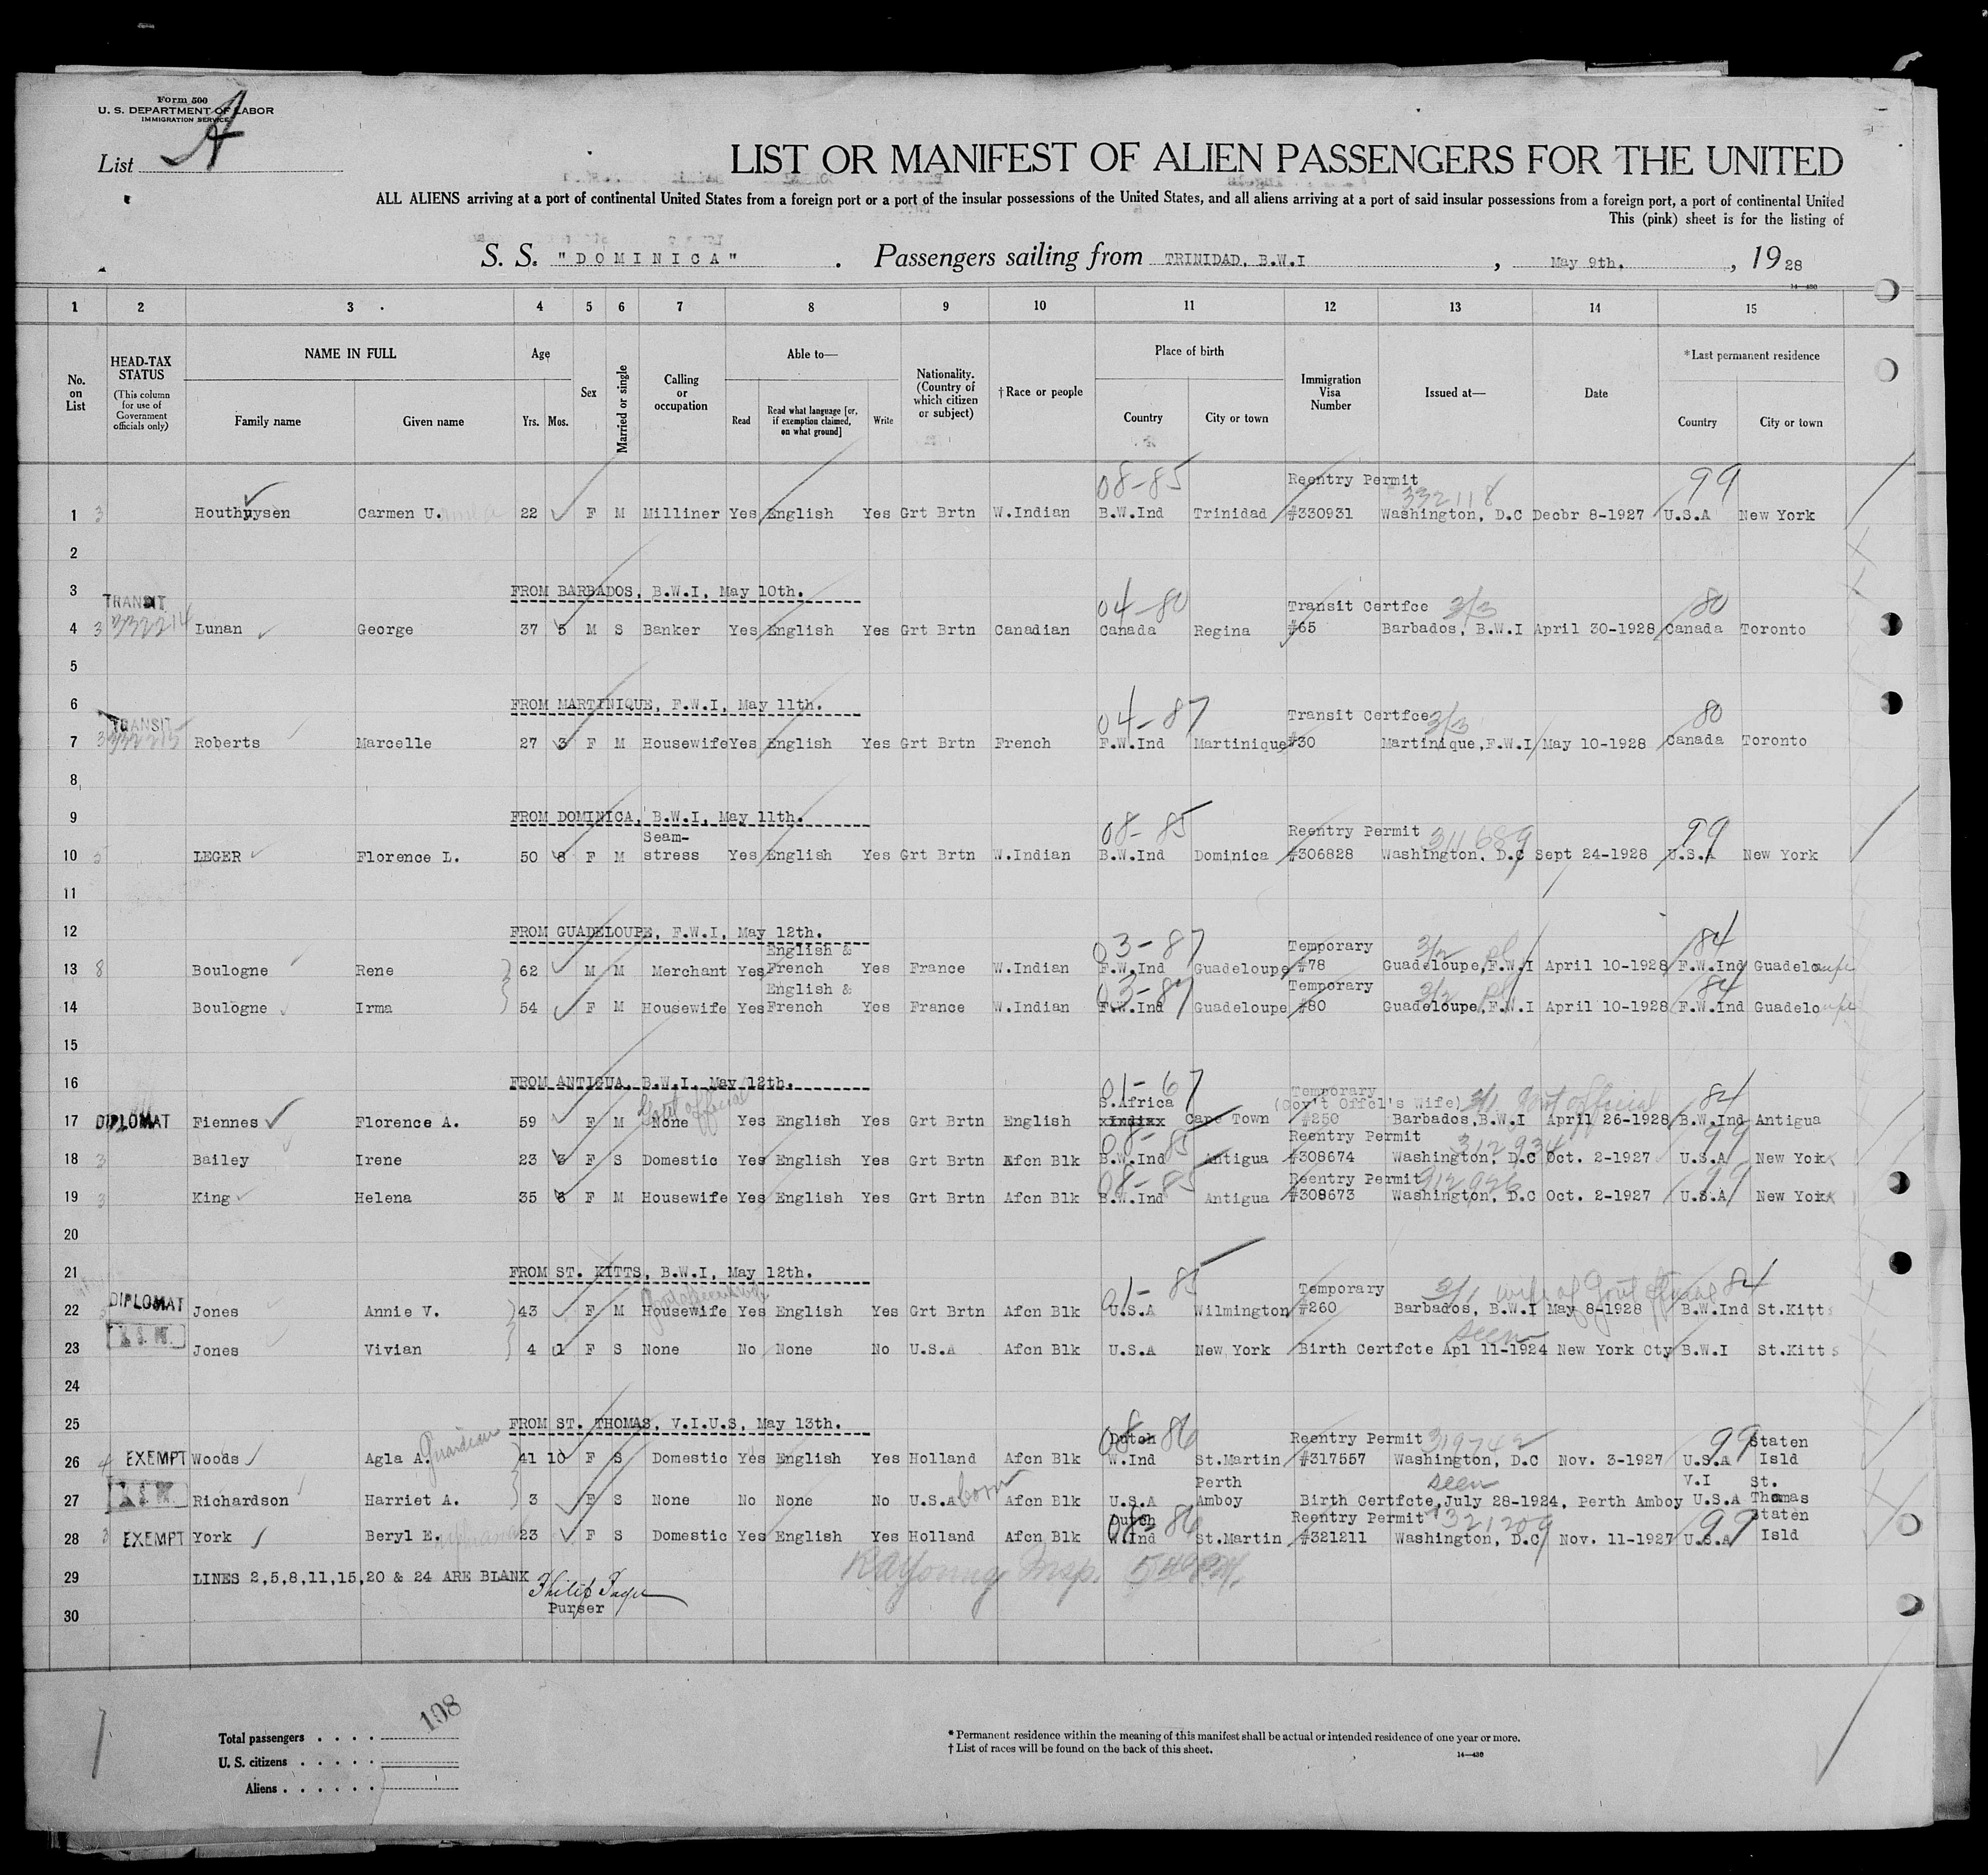 Form 500
U. S. DEPARTMENT OF LABOR
IMMIGRATION SERVICE
List A
LIST OR MANIFEST OF ALIEN PASSENGERS FOR THE UNITED
ALL ALIENS arriving at a port of continental United States from a foreign port or a port of the insular possessions of the United States, and all aliens arriving at a port of said insular possessions from a foreign port, a port of continental United
This (pink) sheet is for the listing of
S. S. "DOMINICA" . Passengers sailing from TRINIDAD, B.W.I , May 9th. , 1928
14-430
1 2 3 4 5 6 7 8 9 10 11 12 13 14 15
No. on List
HEAD-TAX STATUS (This column for use of Government officials only)
NAME IN FULL
Family name Given name
Age
Yrs. Mos.
Sex
Married or single
Calling or occupation
Able to—
Read Read what language [or, if exemption claimed, on what ground] Write
Nationality. (Country of which citizen or subject)
†Race or people
Place of birth
Country City or town
Immigration Visa Number
Issued at—
Date
*Last permanent residence
Country City or town
08-85 Reentry Permit 332118 99
1 3 Houthuysen Carmen U. 22 F M Milliner Yes English Yes Grt Brtn W.Indian B.W.Ind Trinidad #330931 Washington, D.C Decbr 8-1927 U.S.A New York
2
3 FROM BARBADOS, B.W.I, May 10th.
TRANSIT 04-80 Transit Certfce 3/3 80
4 3 Lunan George 37 5 M S Banker Yes English Yes Grt Brtn Canadian Canada Regina #65 Barbados, B.W.I April 30-1928 Canada Toronto
5
6 FROM MARTINIQUE, F.W.I, May 11th.
TRANSIT 04-87 Transit Certfce 3/3 80
7 3 Roberts Marcelle 27 3 F M Housewife Yes English Yes Grt Brtn French F.W.Ind Martinique #30 Martinique,F.W.I May 10-1928 Canada Toronto
8
9 FROM DOMINICA, B.W.I, May 11th.
Seam- 08-85 Reentry Permit 311689 99
10 3 LEGER Florence L. 50 8 F M stress Yes English Yes Grt Brtn W.Indian B.W.Ind Dominica #306828 Washington, D.C Sept 24-1928 U.S.A New York
11
12 FROM GUADELOUPE, F.W.I, May 12th.
English & 03-87 Temporary 3/2 84
13 8 Boulogne Rene 62 M M Merchant Yes French Yes France W.Indian F.W.Ind Guadeloupe #78 Guadeloupe,F.W.I April 10-1928 F.W.Ind Guadeloupe
English & 03-87 Temporary 3/2 84
14 Boulogne Irma 54 F M Housewife Yes French Yes France W.Indian F.W.Ind Guadeloupe #80 Guadeloupe,F.W.I April 10-1928 F.W.Ind Guadeloupe
15
16 FROM ANTIGUA, B.W.I, May 12th.
Govt official 01-67 S.Africa Temporary (Gov't Offcl's Wife) 3/1 Govt official 84
17 DIPLOMAT Fiennes Florence A. 59 F M None Yes English Yes Grt Brtn English Cape Town #250 Barbados,B.W.I April 26-1928 B.W.Ind Antigua
08-85 Reentry Permit 312934 99
18 3 Bailey Irene 23 3 F S Domestic Yes English Yes Grt Brtn Afcn Blk B.W.Ind Antigua #308674 Washington, D.C Oct. 2-1927 U.S.A New York
08-85 Reentry Permit 912926 99
19 3 King Helena 35 8 F M Housewife Yes English Yes Grt Brtn Afcn Blk B.W.Ind Antigua #308673 Washington, D.C Oct. 2-1927 U.S.A New York
20
21 FROM ST. KITTS, B.W.I, May 12th.
01-85 Temporary 3/1 wife of Govt 84
22 DIPLOMAT Jones Annie V. 43 F M Housewife Yes English Yes Grt Brtn Afcn Blk U.S.A Wilmington #260 Barbados, B.W.I May 8-1928 B.W.Ind St.Kitts
seen
23 Jones Vivian 4 1 F S None No None No U.S.A Afcn Blk U.S.A New York Birth Certfcte Apl 11-1924 New York Cty B.W.I St.Kitts
24
25 FROM ST. THOMAS, V.I.U.S, May 13th.
Guardian Dutch 08-86 Reentry Permit 319742 99 Staten
26 4 EXEMPT Woods Agla A. 41 10 F S Domestic Yes English Yes Holland Afcn Blk W.Ind St.Martin #317557 Washington, D.C Nov. 3-1927 U.S.A Isld
born Perth seen V.I St.
27 Richardson Harriet A. 3 F S None No None No U.S.A Afcn Blk U.S.A Amboy Birth Certfcte,July 28-1924, Perth Amboy U.S.A Thomas
Dutch 08-86 Reentry Permit 321209 99 Staten
28 3 EXEMPT York Beryl E. 23 F S Domestic Yes English Yes Holland Afcn Blk W.Ind St.Martin #321211 Washington, D.C Nov. 11-1927 U.S.A Isld
29 LINES 2,5,8,11,15,20 & 24 ARE BLANK
Philip
30 Purser
RAYoung Insp.
Total passengers . . . . 108
U. S. citizens . . . . .
Aliens . . . . . .
* Permanent residence within the meaning of this manifest shall be actual or intended residence of one year or more.
† List of races will be found on the back of this sheet.
14-430